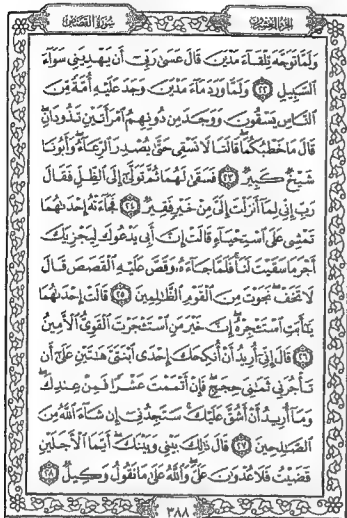 سُورَةُ القَصَصِ
الجُزْءُ العِشْرُونَ
وَلَمَّا تَوَجَّهَ تِلْقَآءَ مَدْيَنَ قَالَ عَسَىٰ رَبِّىٓ أَن يَهْدِيَنِى سَوَآءَ
ٱلسَّبِيلِ ٢٢ وَلَمَّا وَرَدَ مَآءَ مَدْيَنَ وَجَدَ عَلَيْهِ أُمَّةً مِّنَ
ٱلنَّاسِ يَسْقُونَ وَوَجَدَ مِن دُونِهِمُ ٱمْرَأَتَيْنِ تَذُودَانِۖ
قَالَ مَا خَطْبُكُمَاۖ قَالَتَا لَا نَسْقِى حَتَّىٰ يُصْدِرَ ٱلرِّعَآءُۖ وَأَبُونَا
شَيْخٌ كَبِيرٌ ٢٣ فَسَقَىٰ لَهُمَا ثُمَّ تَوَلَّىٰٓ إِلَى ٱلظِّلِّ فَقَالَ
رَبِّ إِنِّى لِمَآ أَنزَلْتَ إِلَىَّ مِنْ خَيْرٍ فَقِيرٌ ٢٤ فَجَآءَتْهُ إِحْدَىٰهُمَا
تَمْشِى عَلَى ٱسْتِحْيَآءٍ قَالَتْ إِنَّ أَبِى يَدْعُوكَ لِيَجْزِيَكَ
أَجْرَ مَا سَقَيْتَ لَنَاۚ فَلَمَّا جَآءَهُۥ وَقَصَّ عَلَيْهِ ٱلْقَصَصَ قَالَ
لَا تَخَفْۖ نَجَوْتَ مِنَ ٱلْقَوْمِ ٱلظَّـٰلِمِينَ ٢٥ قَالَتْ إِحْدَىٰهُمَا
يَـٰٓأَبَتِ ٱسْتَـْٔجِرْهُۖ إِنَّ خَيْرَ مَنِ ٱسْتَـْٔجَرْتَ ٱلْقَوِىُّ ٱلْأَمِينُ
٢٦ قَالَ إِنِّىٓ أُرِيدُ أَنْ أُنكِحَكَ إِحْدَى ٱبْنَتَىَّ هَـٰتَيْنِ عَلَىٰٓ أَن
تَأْجُرَنِى ثَمَـٰنِىَ حِجَجٍۖ فَإِنْ أَتْمَمْتَ عَشْرًا فَمِنْ عِندِكَۖ
وَمَآ أُرِيدُ أَنْ أَشُقَّ عَلَيْكَۚ سَتَجِدُنِىٓ إِن شَآءَ ٱللَّهُ مِنَ
ٱلصَّـٰلِحِينَ ٢٧ قَالَ ذَٰلِكَ بَيْنِى وَبَيْنَكَۖ أَيَّمَا ٱلْأَجَلَيْنِ
قَضَيْتُ فَلَا عُدْوَٰنَ عَلَىَّۖ وَٱللَّهُ عَلَىٰ مَا نَقُولُ وَكِيلٌ ٢٨
٣٨٨